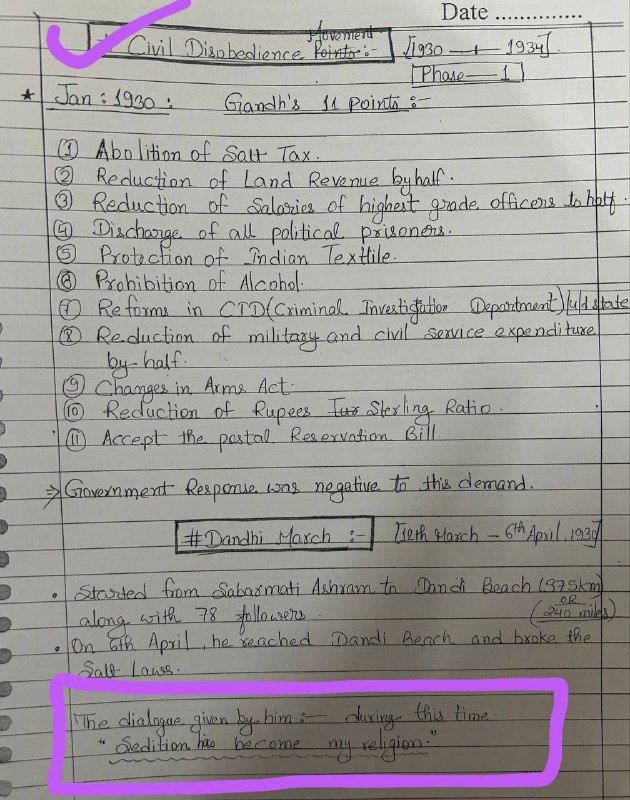 Date ..............
* Civil Disobedience Movement Points:- [1930 — 1934]
Phase — 1
★ Jan: 1930: Gandh's 11 points:-
① Abolition of Salt Tax.
② Reduction of Land Revenue by half.
③ Reduction of Salaries of highest grade officers to half.
④ Discharge of all political prisoners.
⑤ Protection of Indian Textile.
⑥ Prohibition of Alcohol.
⑦ Reforms in CID (Criminal Investigation Department)
⑧ Reduction of military and civil service expenditure
by-half.
⑨ Changes in Arms Act.
⑩ Reduction of Rupees Sterling Ratio.
⑪ Accept the postal Reservation Bill.
⇒ Government Response was negative to this demand.
#Dandhi March :- [12th March - 6th April, 1930]
• Started from Sabarmati Ashram to Dandi Beach (375km)
OR
along with 78 followers (240 miles)
• On 6th April, he reached Dandi Beach and broke the
Salt Laws.
The dialogue given by him:- during this time.
"Sedition has become my religion."